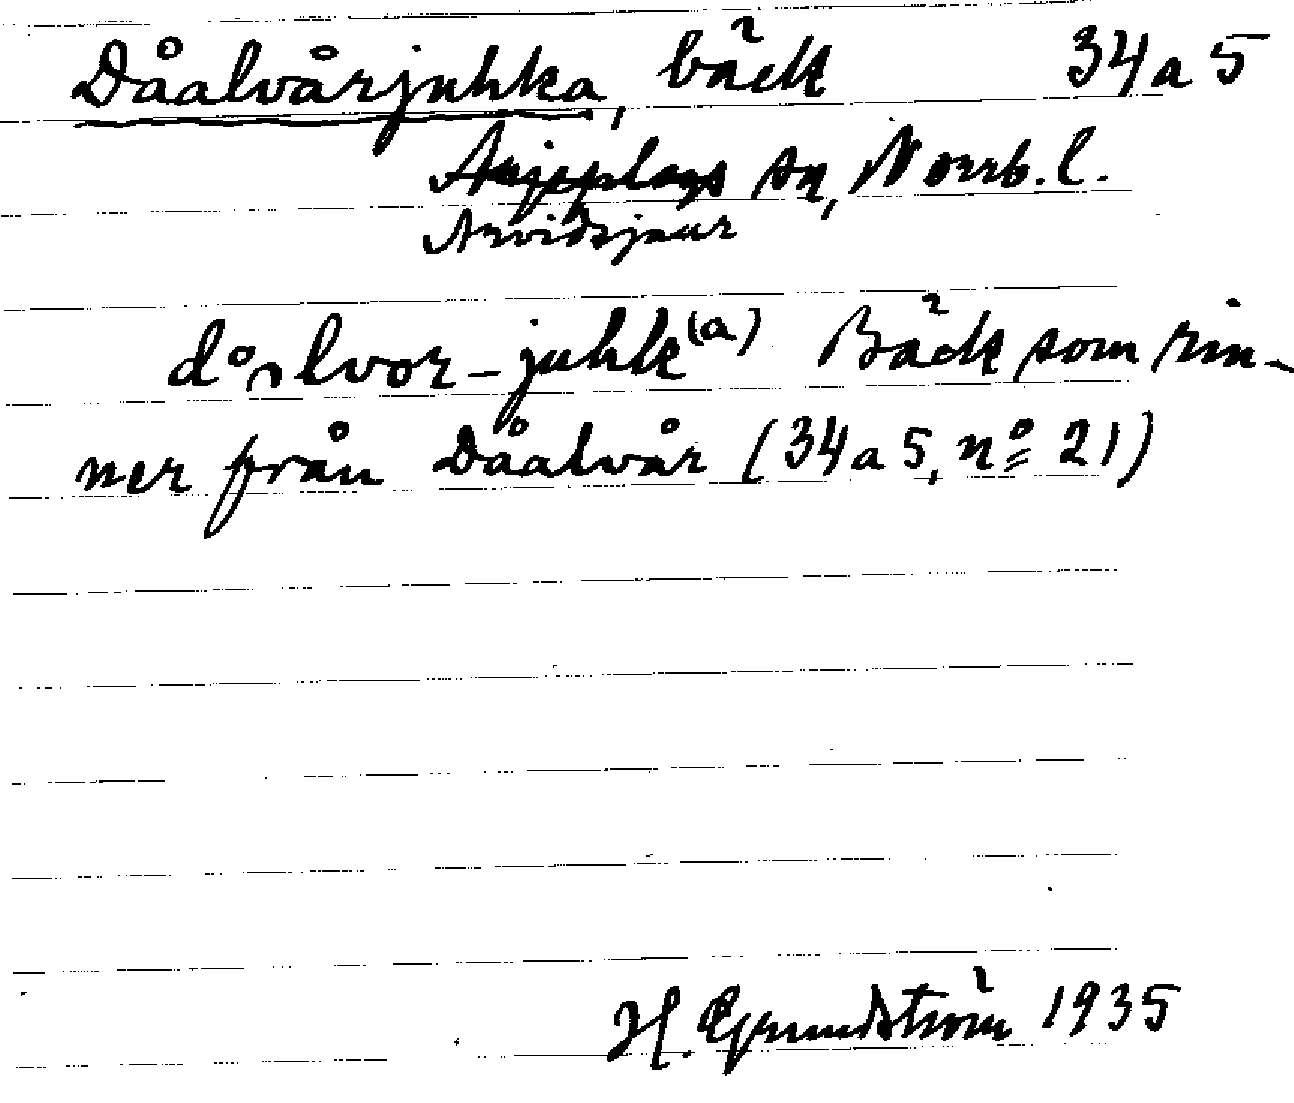 Dåalvårjuhka, bäck 34a5
Arjeplogs sn, Norrb. l.
Arvidsjaur
dånlvor-juhk(a) Bäck som rin-
ner från Dåalvår (34a5, nº 21)
H. Grundström 1935